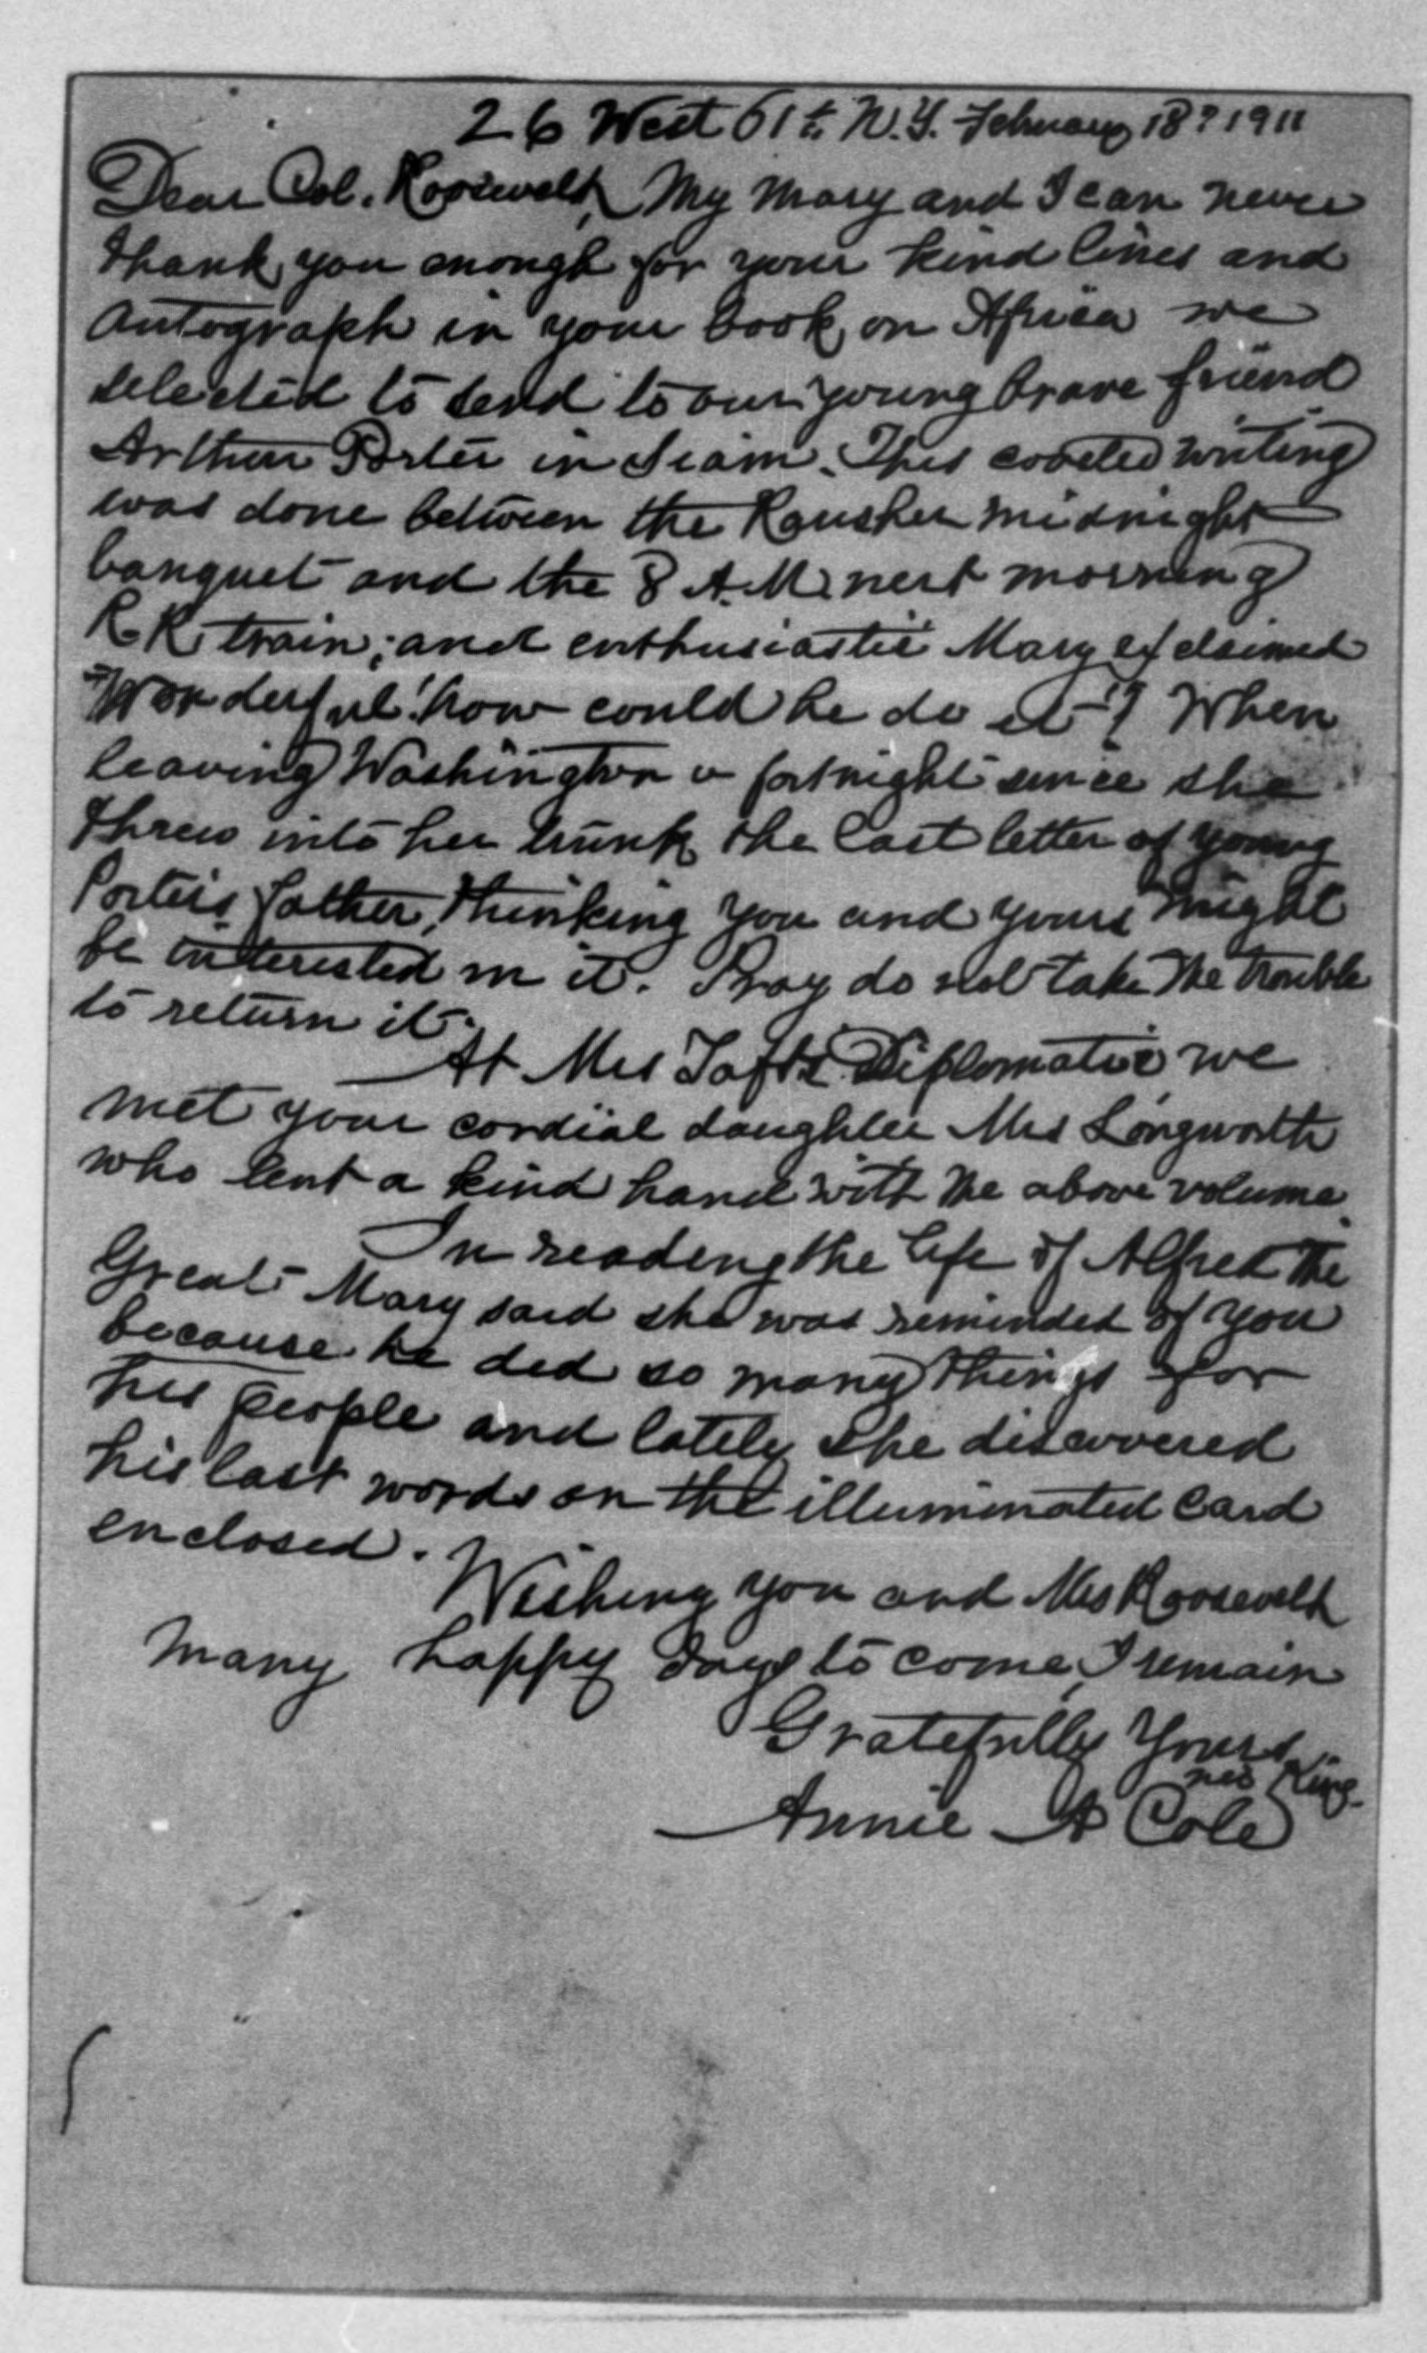 26 West 61th N.Y. February 18? 1911
Dear Col. Roosevelt, My Mary and I can never
thank you enough for your kind lines and
Autograph in your book on Africa we
selected to send to our young brave friend
Arthur Porter in Siam. This coveted writing
was done between the Rauscher midnight
banquet and the 8 A.M. next morning
R.R. train; and enthusiastic Mary exclaimed
"Wonderful! how could he do it"? When
leaving Washington a fortnight since she
threw into her trunk the last letter of young
Porter's father, thinking you and yours might
be interested in it. Pray do not take the trouble
to return it.
At Mrs Taft's Diplomatic we
met your cordial daughter Mrs Longworth
who lent a kind hand with the above volume.
In reading the life of Alfred the
Great Mary said she was reminded of you
because he did so many things for
his people and lately she discovered
his last words on the illuminated card
enclosed.
Wishing you and Mrs Roosevelt
many happy days to come, I remain
Gratefully Yours
née King.
Annie A Cole